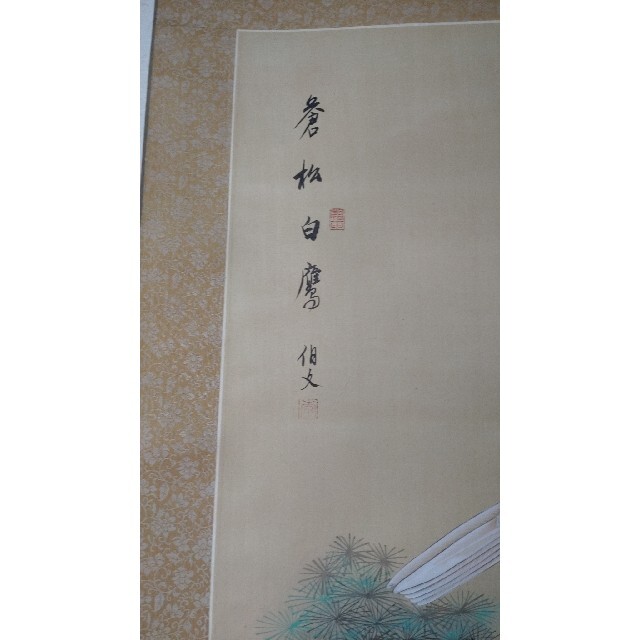 蒼松白鷹 伯文